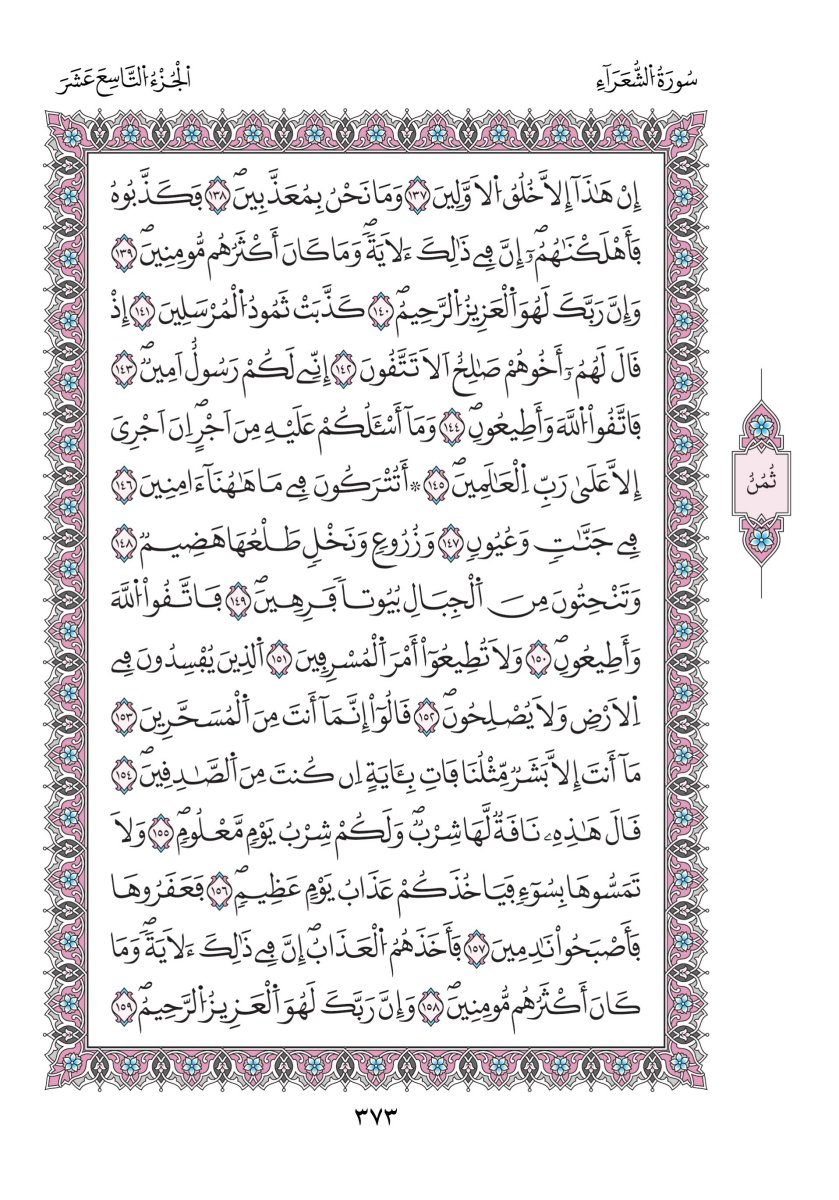 سُورَةُ اُ۬لشُّعَرَآءِ
اَ۬لْجُزْءُ اُ۬لتَّاسِعَ عَشَرَ
إِنْ هَٰذَآ إِلَّا خُلُقُ اُ۬لَاوَّلِينَ ١٣٧ وَمَا نَحْنُ بِمُعَذَّبِينَۖ ١٣٨ فَكَذَّبُوهُ
فَأَهْلَكْنَٰهُمُۥٓۖ إِنَّ فِے ذَٰلِكَ ءَلَايَةٗۖ وَمَا كَانَ أَكْثَرُهُم مُّومِنِينَۖ ١٣٩
وَإِنَّ رَبَّكَ لَهُوَ اَ۬لْعَزِيزُ اُ۬لرَّحِيمُۖ ١٤٠ كَذَّبَتْ ثَمُودُ اُ۬لْمُرْسَلِينَ ١٤١ إِذْ
قَالَ لَهُمُۥٓ أَخُوهُمْ صَٰلِحٌ اَلَا تَتَّقُونَ ١٤٢ إِنِّے لَكُمْ رَسُولٌ اَمِينٞۖ ١٤٣
فَاتَّقُواْ اُ۬للَّهَ وَأَطِيعُونِۖ ١٤٤ وَمَآ أَسْـَٔلُكُمْ عَلَيْهِ مِنَ اَجْرٍۖ اِنَ اَجْرِىَ
إِلَّا عَلَىٰ رَبِّ اِ۬لْعَٰلَمِينَۖ ١٤٥ ۞ أَتُتْرَكُونَ فِے مَا هَٰهُنَآ ءَامِنِينَ ١٤٦
فِے جَنَّٰتٖ وَعُيُونٖ ١٤٧ وَزُرُوعٖ وَنَخْلٖ طَلْعُهَا هَضِيمٞ ١٤٨
وَتَنْحِتُونَ مِنَ اَ۬لْجِبَالِ بُيُوتاٗ فَرِهِينَۖ ١٤٩ فَاتَّقُواْ اُ۬للَّهَ
وَأَطِيعُونِۖ ١٥٠ وَلَا تُطِيعُوٓاْ أَمْرَ اَ۬لْمُسْرِفِينَ ١٥١ اَ۬لذِينَ يُفْسِدُونَ فِے
اِ۬لَارْضِ وَلَا يُصْلِحُونَۖ ١٥٢ قَالُوٓاْ إِنَّمَآ أَنتَ مِنَ اَ۬لْمُسَحَّرِينَ ١٥٣
مَآ أَنتَ إِلَّا بَشَرٞ مِّثْلُنَا فَاتِ بِـَٔايَةٍ اِن كُنتَ مِنَ اَ۬لصَّٰدِقِينَۖ ١٥٤
قَالَ هَٰذِهِۦ نَاقَةٞ لَّهَا شِرْبٞۖ وَلَكُمْ شِرْبُ يَوْمٖ مَّعْلُومٖۖ ١٥٥ وَلَا
تَمَسُّوهَا بِسُوٓءٖ فَيَاخُذَكُمْ عَذَابُ يَوْمٍ عَظِيمٖۖ ١٥٦ فَعَقَرُوهَا
فَأَصْبَحُواْ نَٰدِمِينَ ١٥٧ فَأَخَذَهُمُ اُ۬لْعَذَابُۖ إِنَّ فِے ذَٰلِكَ ءَلَايَةٗۖ وَمَا
كَانَ أَكْثَرُهُم مُّومِنِينَۖ ١٥٨ وَإِنَّ رَبَّكَ لَهُوَ اَ۬لْعَزِيزُ اُ۬لرَّحِيمُۖ ١٥٩
ثُمُنُ
٣٧٣